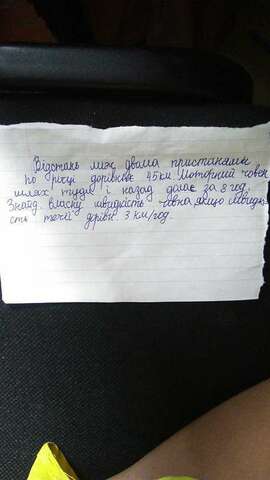 Відстань між двома пристанями
по річці дорівнює 45 км Моторний човен
шлях туди і назад долає за 8 год.
Знайд. власну швидкість човна, якщо швидкі
сть течії дорівн. 3 км/год.